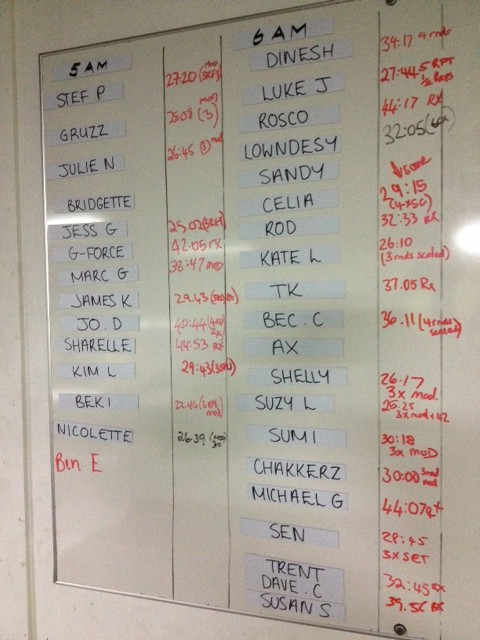 5 AM
STEF P 27:20
GRUZZ 28:08 (3)
JULIE N 26:45 (3) mod
BRIDGETTE
JESS G 25.02
G-FORCE 42.05 rx
MARC G 38:47 mod
JAMES K 29.43
JO.D 40:44
SHARELLE 44:53 RX
KIM L 29:43
BEKI
NICOLETTE 26.39
Ben E
6 AM
DINESH 34:17 4 rnds
LUKE J 27:44 5 RFT
ROSCO 44:17 RX
LOWNDESY 32:05
SANDY
CELIA 29:15
ROD 32:33 RX
KATE L 26:10
(3 rnds scaled)
TK 37.05 Rx
BEC.C 36.11 (4 rnds
scaled)
AX
SHELLY 26.17
3x mod.
SUZY L 25.25
SUMI 30:18
3x MOD
CHAKKERZ 30:00
MICHAEL G 44:07
SEN 28:45
3x SET
TRENT
DAVE.C 32:45 RX
SUSAN S 39.56 RX